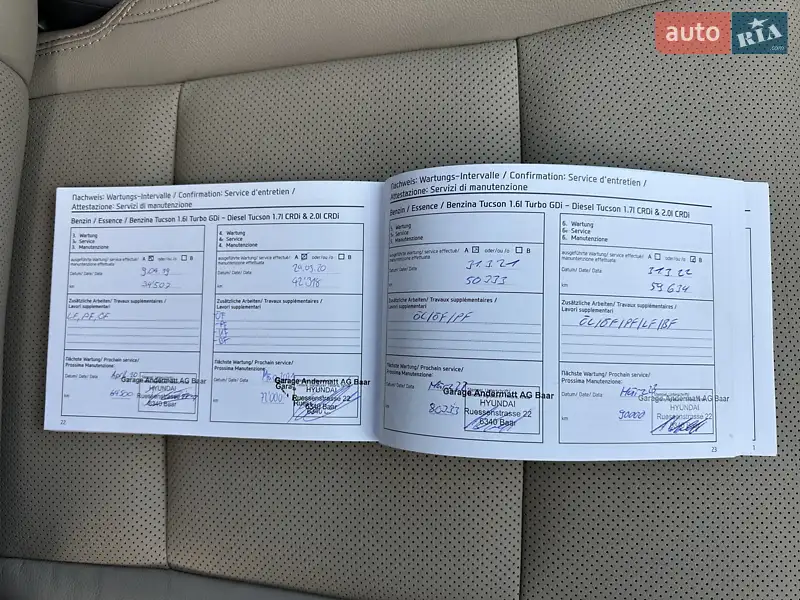 auto RIA .com
Nachweis: Wartungs-Intervalle / Confirmation: Service d'entretien /
Attestazione: Servizi di manutenzione
Benzin / Essence / Benzina Tucson 1.6l Turbo GDi – Diesel Tucson 1.7l CRDi & 2.0l CRDi
3. Wartung
3. Service
3. Manutenzione
ausgeführte Wartung/ service effectué/ A oder/ou/o B
manutenzione effettuata
Datum/ Date/ Data 9.04.19
km 34507
Zusätzliche Arbeiten/ Travaux supplémentaires /
Lavori supplementari
LF, PF, ÖF
Nächste Wartung/ Prochain service/
Prossima Manutenzione:
Datum/ Date/ Data April 20
km 64500
Garage Andermatt AG Baar
HYUNDAI
Ruessenstrasse 22
6340 Baar
22
4. Wartung
4. Service
4. Manutenzione
ausgeführte Wartung/ service effectué/ A oder/ou/o B
manutenzione effettuata
Datum/ Date/ Data
km 42'918
Zusätzliche Arbeiten/ Travaux supplémentaires /
Lavori supplementari
Nächste Wartung/ Prochain service/
Prossima Manutenzione:
Datum/ Date/ Data
km
Garage Andermatt AG Baar
HYUNDAI
Ruessenstrasse 22
6340 Baar
Nachweis: Wartungs-Intervalle / Confirmation: Service d'entretien /
Attestazione: Servizi di manutenzione
Benzin / Essence / Benzina Tucson 1.6l Turbo GDi – Diesel Tucson 1.7l CRDi & 2.0l CRDi
5. Wartung
5. Service
5. Manutenzione
ausgeführte Wartung/ service effectué/ A oder/ou/o B
manutenzione effettuata
Datum/ Date/ Data 31.3.21
km 50733
Zusätzliche Arbeiten/ Travaux supplémentaires /
Lavori supplementari
ÖL/ÖF/PF
Nächste Wartung/ Prochain service/
Prossima Manutenzione:
Datum/ Date/ Data März 22
km 80733
Garage Andermatt AG Baar
HYUNDAI
Ruessenstrasse 22
6340 Baar
6. Wartung
6. Service
6. Manutenzione
ausgeführte Wartung/ service effectué/ A oder/ou/o B
manutenzione effettuata
Datum/ Date/ Data 31.3.22
km 59634
Zusätzliche Arbeiten/ Travaux supplémentaires /
Lavori supplementari
ÖL/ÖF/PF/LF/BF
Nächste Wartung/ Prochain service/
Prossima Manutenzione:
Datum/ Date/ Data März 23
km 90000
Garage Andermatt AG Baar
HYUNDAI
Ruessenstrasse 22
6340 Baar
23